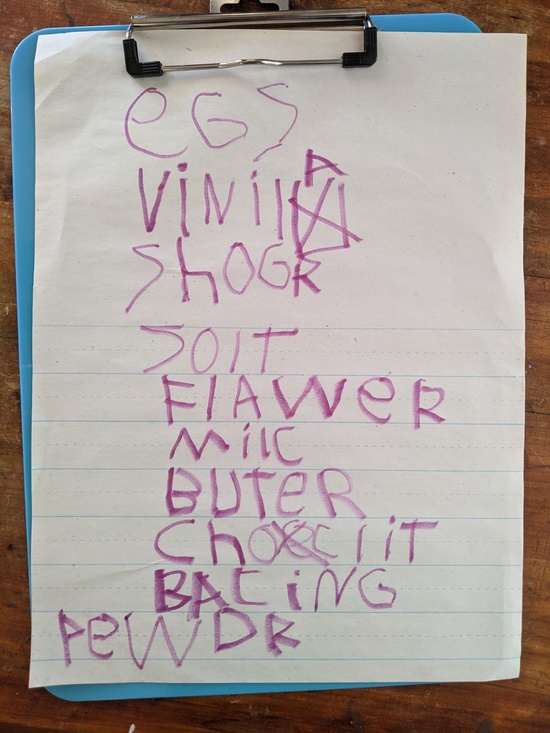 eGS
ViNillA
ShOGR
SOlT
FlAWeR
MilC
BUTeR
ChOCliT
BACiNG
PeWDR